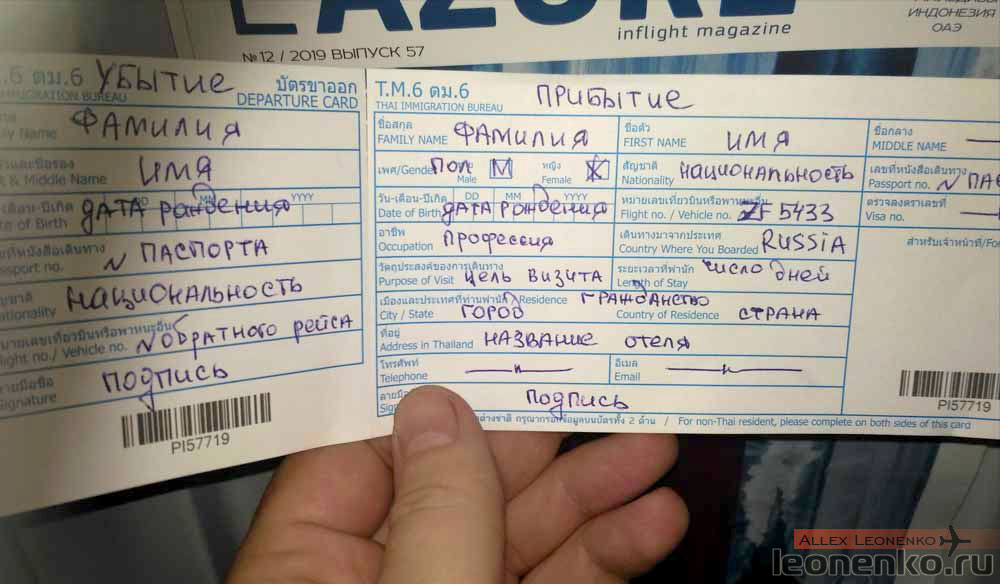 AZURE
inflight magazine
№ 12 / 2019 ВЫПУСК 57
ИНДОНЕЗИЯ
ОАЭ
.6 ตม.6 УБЫТИЕ บัตรขาออก
IMMIGRATION BUREAU DEPARTURE CARD
Name ФАМИЛИЯ
และชื่อรอง
& Middle Name ИМЯ
-เดือน-ปีเกิด DD MM YYYY
of Birth ДАТА рождения
ที่หนังสือเดินทาง
ssport no. N ПАСПОРТА
ชาติ
ationality Национальность
มายเลขเที่ยวบินหรือพาหนะอื่น
light no./ Vehicle no. N обратного рейса
ลายมือชื่อ
Signature подпись
PI57719
T.M.6 ตม.6 ПРИБЫТИЕ
THAI IMMIGRATION BUREAU
ชื่อสกุล ชื่อตัว ชื่อกลาง
FAMILY NAME ФАМИЛИЯ FIRST NAME ИМЯ MIDDLE NAME —
เพศ/Gender ПОЛ ชาย Male M หญิง Female สัญชาติ Nationality национальность เลขที่หนังสือเดินทาง Passport no. N ПАС
วัน-เดือน-ปีเกิด DD MM YYYY หมายเลขเที่ยวบินหรือพาหนะอื่น ตรวจลงตราเลขที่
Date of Birth ДАТА рождения Flight no. / Vehicle no. ZF 5433 Visa no. —
อาชีพ เดินทางมาจากประเทศ สำหรับเจ้าหน้าที่/For
Occupation профессия Country Where You Boarded RUSSIA
วัตถุประสงค์ของการเดินทาง ระยะเวลาที่พำนัก
Purpose of Visit цель визита Length of Stay число дней
เมืองและประเทศที่ท่านพำนัก Residence гражданство
City / State город Country of Residence СТРАНА
ที่อยู่
Address in Thailand НАЗВАНИЕ отеля
โทรศัพท์ อีเมล
Telephone —н— Email —н—
ลายมือ
Sig подпись
PI57719
ต่างชาติ กรุณากรอกข้อมูลบนบัตรทั้ง 2 ด้าน / For non-Thai resident, please complete on both sides of this card
ALLEX LEONENKO
leonenko.ru